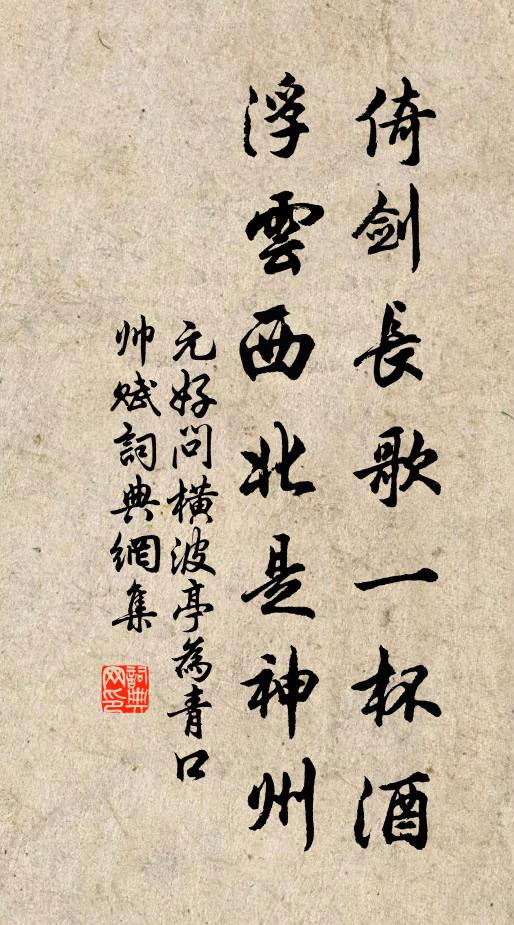 倚劍長歌一杯酒
浮雲西北是神州
元好問橫波亭為青口
帅賦詞典網集
詞典
网印